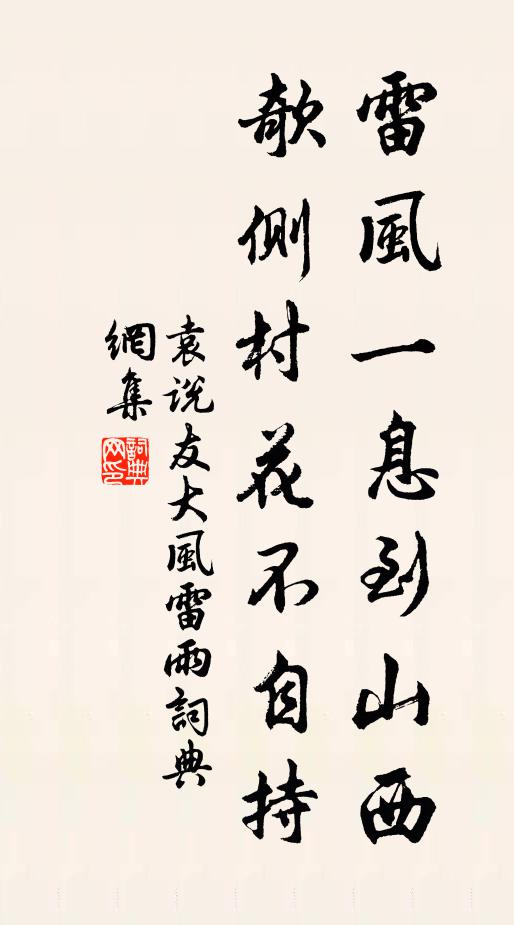 雷風一息到山西
欹側村花不自持
袁説友大風雷雨詞典
網集
詞典網印